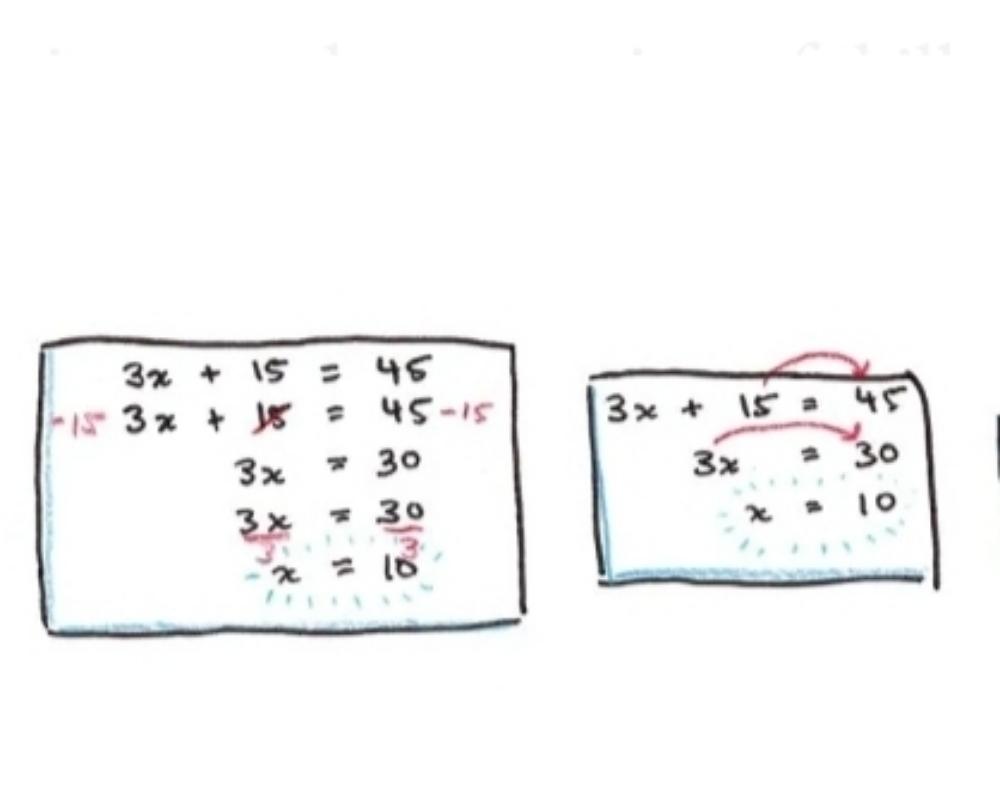 3x + 15 = 45
-15 3x + 15 = 45 -15
3x = 30
3x = 30
3 3
x = 10
3x + 15 = 45
3x = 30
x = 10